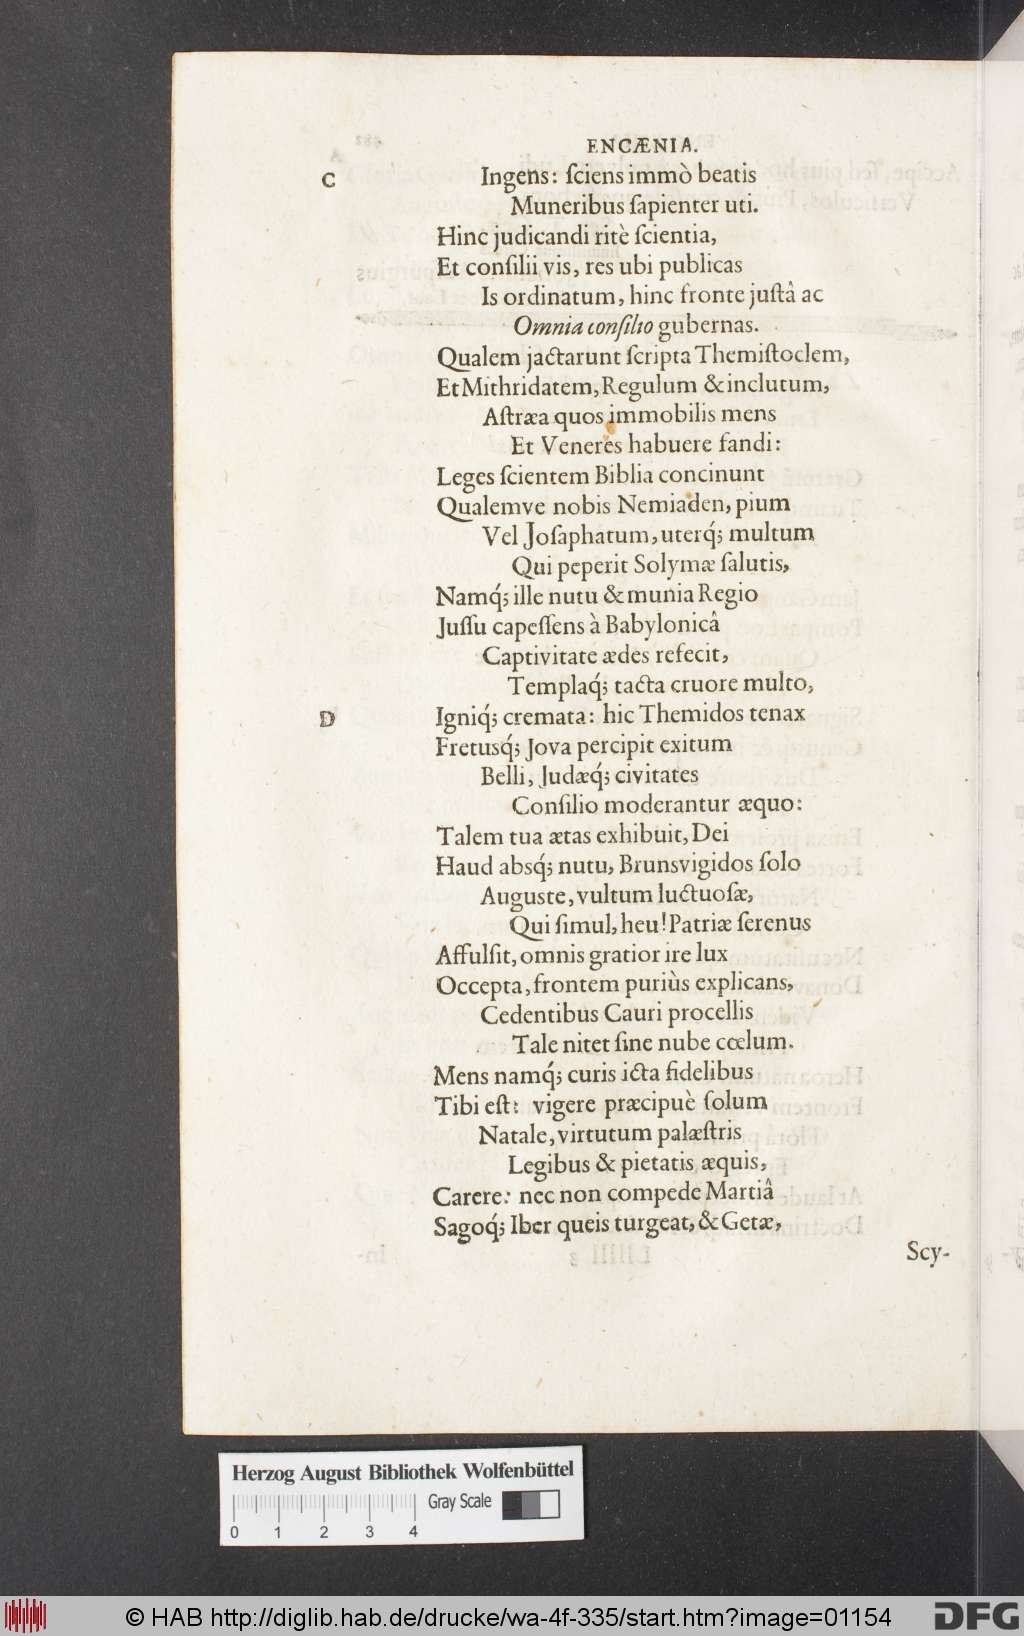 ENCÆNIA.
C Ingens: ſciens immò beatis
Muneribus ſapienter uti.
Hinc judicandi ritè ſcientia,
Et conſilii vis, res ubi publicas
Is ordinatum, hinc fronte juſtâ ac
Omnia conſilio gubernas.
Qualem jactarunt ſcripta Themiſtoclem,
Et Mithridatem, Regulum & inclutum,
Aſtræa quos immobilis mens
Et Veneres habuere fandi:
Leges ſcientem Biblia concinunt
Qualemve nobis Nemiaden, pium
Vel Joſaphatum, uterq́; multum
Qui peperit Solymæ ſalutis,
Namq́; ille nutu & munia Regio
Juſſu capeſſens à Babylonicâ
Captivitate ædes refecit,
Templaq́; tacta cruore multo,
D Igniq́; cremata: hic Themidos tenax
Fretusq́; Jova percipit exitum
Belli, Judæq́; civitates
Conſilio moderantur æquo:
Talem tua ætas exhibuit, Dei
Haud absq́; nutu, Brunsvigidos ſolo
Auguste, vultum luctuoſæ,
Qui ſimul, heu! Patriæ ſerenus
Affulſit, omnis gratior ire lux
Occepta, frontem puriùs explicans,
Cedentibus Cauri procellis
Tale nitet ſine nube cœlum.
Mens namq́; curis icta fidelibus
Tibi eſt: vigere præcipuè ſolum
Natale, virtutum palæſtris
Legibus & pietatis æquis,
Carere: nec non compede Martiâ
Sagoq́; Iber queis turgeat, & Getæ,
Scy-
Herzog August Bibliothek Wolfenbüttel
Gray Scale
0 1 2 3 4
© HAB http://diglib.hab.de/drucke/wa-4f-335/start.htm?image=01154
DFG